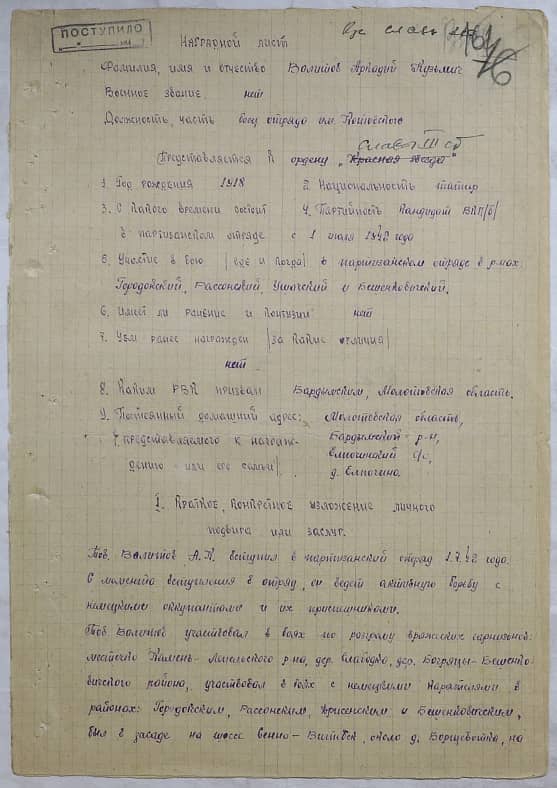 ПОСТУПИЛО
Наградной лист
Фамилия, имя и отчество Валитов Аркадий Кузьмич
Военное звание нет
Должность, часть боец отряда им. Котовского
Славы III ст
Представляется к ордену „Красная звезда"
1. Год рождения 1918 2. Национальность татар
3. С какого времени состоит 4. Партийность Кандидат ВКП/б/
в партизанском отряде с 1 июля 1942 года
5. Участие в бою /где и когда/ в партизанском отряде в р-нах:
Городокский, Рассонский, Ушачский и Бешенковичский.
6. Имеет ли ранение и контузии нет
7. Чем ранее награжден /за какие отличия/
нет
8. Каким РВК призван Бардымским, Молотовская область.
9. Постоянный домашний адрес: Молотовская область,
/представляемого к награж- Бардымский р-н,
дению или его семьи/ Елпачинский с/с,
д. Елпачино.
I. Краткое, конкретное изложение личного
подвига или заслуг.
Тов. Валитов А.К. вступил в партизанский отряд 1.7.42 года.
С момента вступления в отряд, он ведет активную борьбу с
немецкими оккупантами и их приспешниками.
Тов. Валитов участвовал в боях по разгрому вражеских гарнизонов:
местечко Камень-Лепельского р-на, дер. Слабодка, дер. Богряцы-Бешенко-
вичского района, участвовал в боях с немецкими карателями в
районах: Городокским, Рассонским, Дрисенским и Бешенковичским,
был в засаде на шоссе Сенно-Витебск, около д. Борщевотка, на